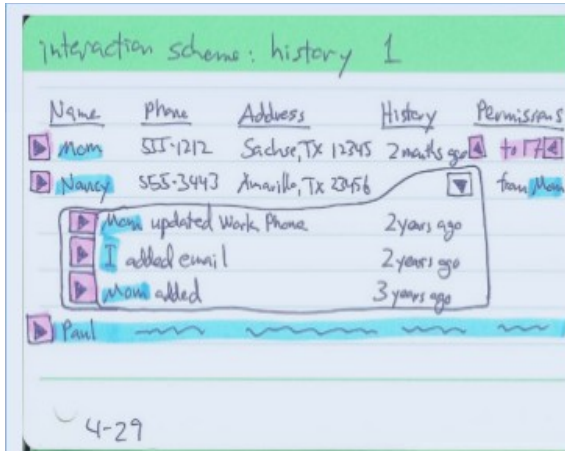 interaction scheme: history 1
Name Phone Address History Permissions
Mom 555-1212 Sachse, TX 12345 2 months ago to
Nancy 555-3443 Amarillo, TX 23456 from Mom
Mom updated Work Phone 2 years ago
I added email 2 years ago
Mom added 3 years ago
Paul
4-29